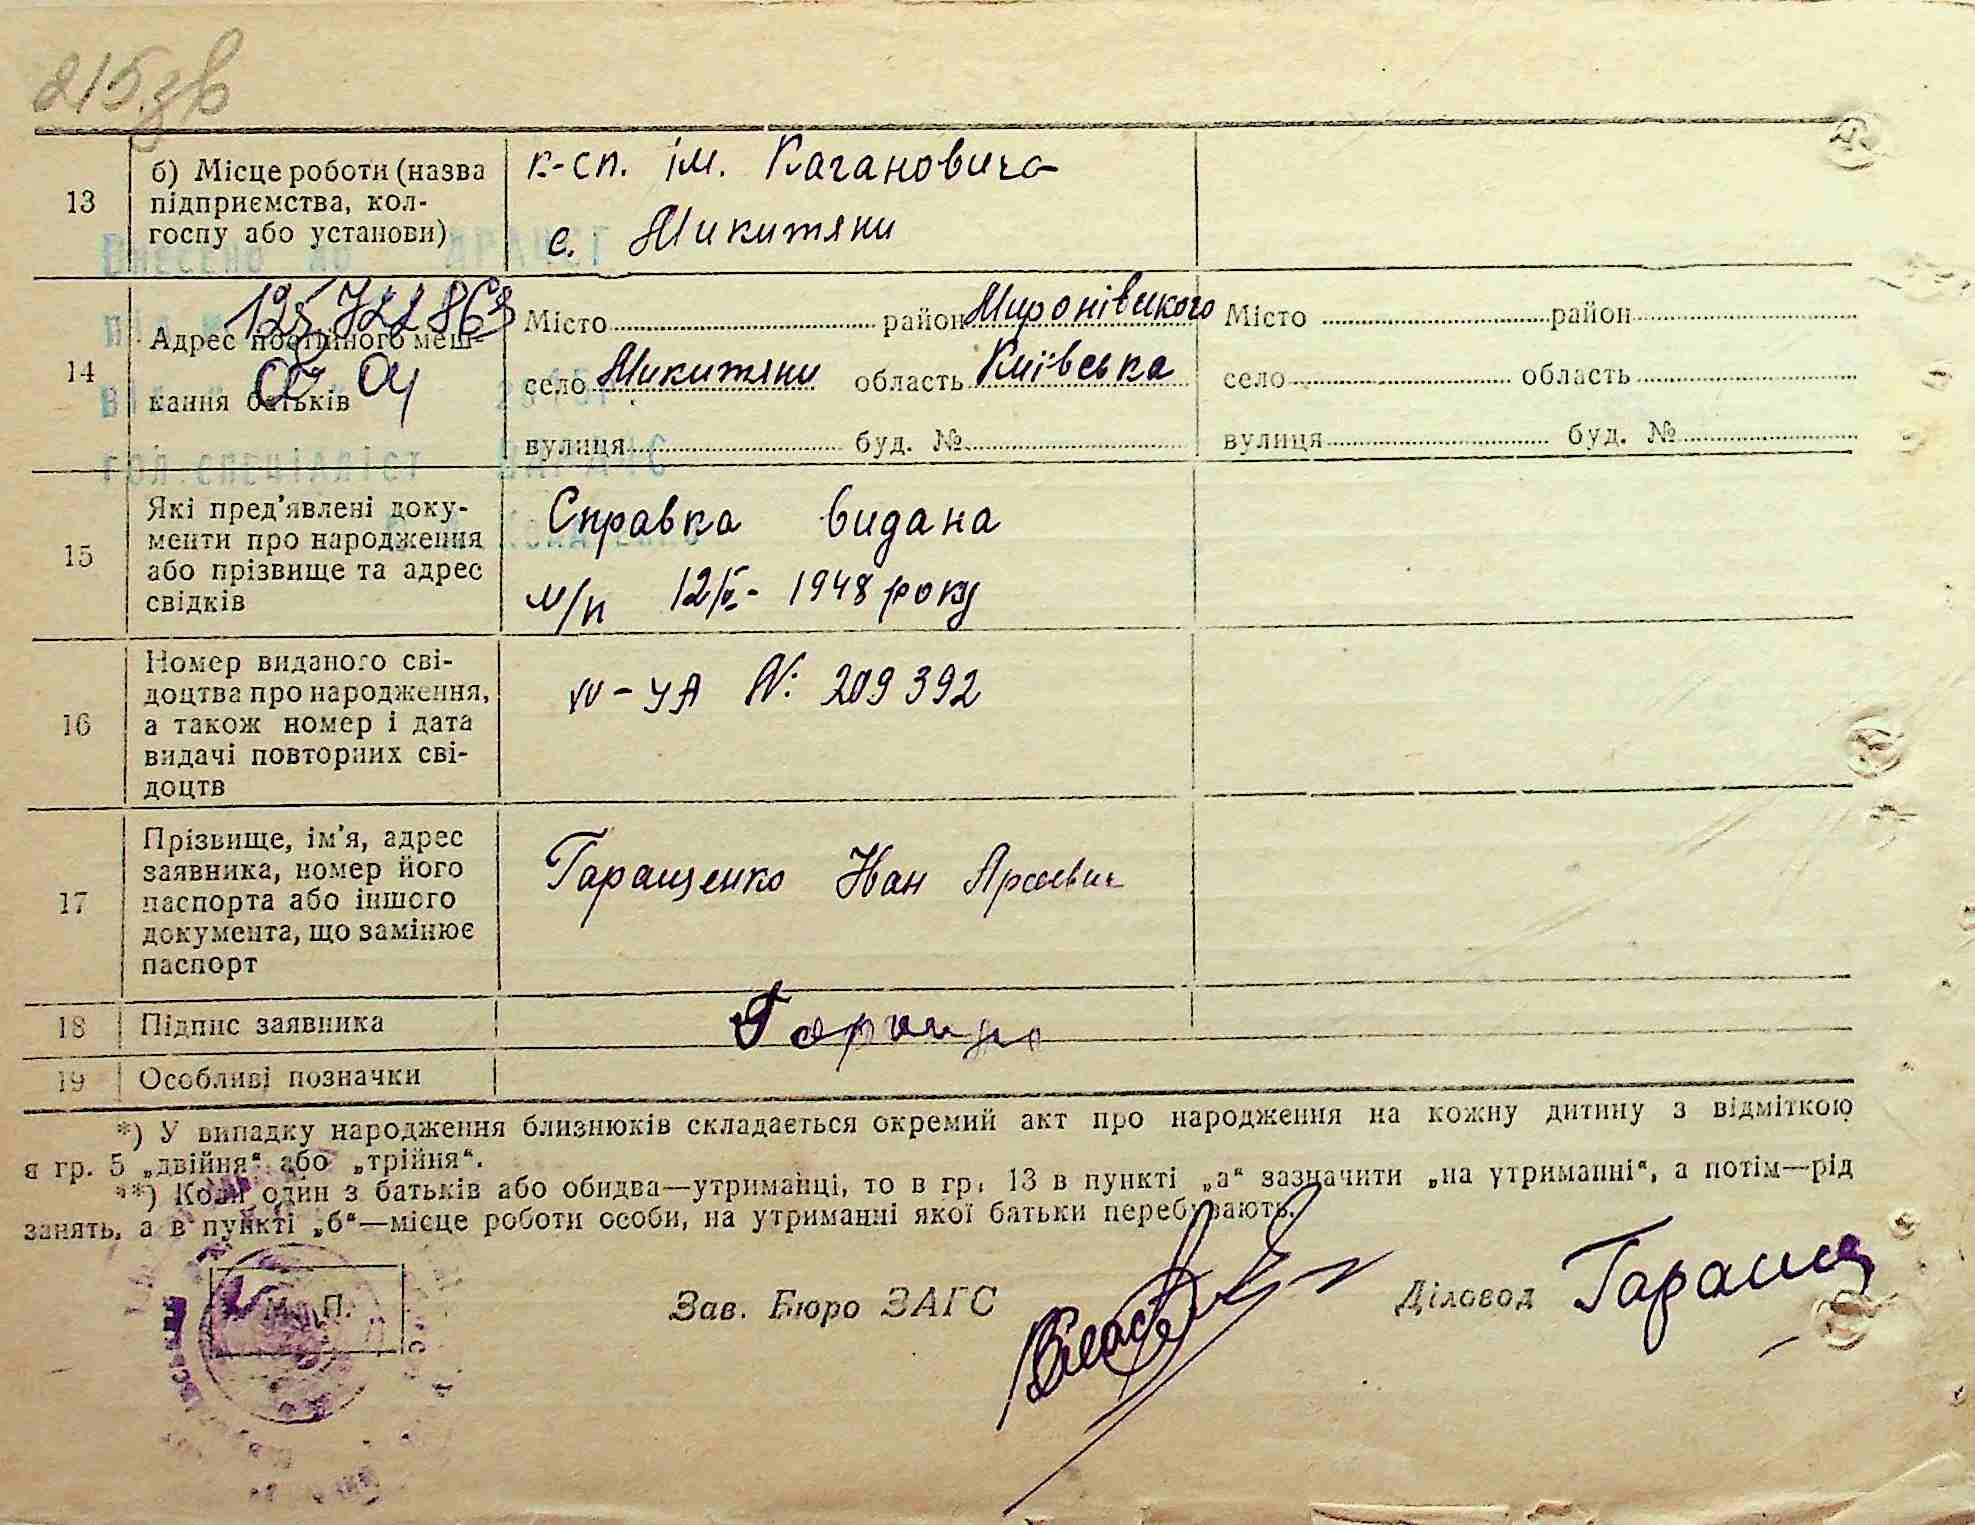 215 зв
13
б) Місце роботи (назва
підприємства, кол-
госпу або установи)
к-сп. ім. Кагановича
с. Микитяни
14
Адрес постійного меш-
кання батьків
Внесено до ДРАЦСГ
гол.спеціаліст
Місто район Миронівського
село Микитяни область Київська
вулиця буд. №
Місто район
село область
вулиця буд. №
15
Які пред'явлені доку-
менти про народження
або прізвище та адрес
свідків
Справка видана
м/п 1948 року
16
Номер виданого сві-
доцтва про народження,
а також номер і дата
видачі повторних сві-
доцтв
IV-УА №: 209392
17
Прізвище, ім'я, адрес
заявника, номер його
паспорта або іншого
документа, що замінює
паспорт
Гаращенко Іван
18
Підпис заявника
19
Особливі позначки
*) У випадку народження близнюків складається окремий акт про народження на кожну дитину з відміткою
в гр. 5 „двійня“ або „трійня“.
**) Коли один з батьків або обидва—утриманці, то в гр. 13 в пункті „а“ зазначити „на утриманні“, а потім—рід
занять, а в пункті „б“—місце роботи особи, на утриманні якої батьки перебувають.
М. П.
Зав. Бюро ЗАГС
Діловод Гаращ